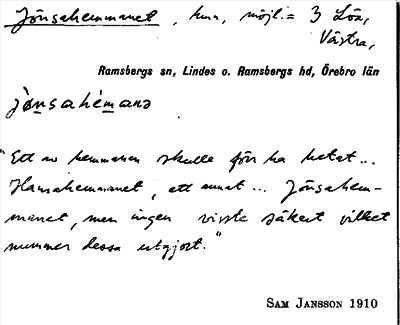 Jönsahemmanet, hmn, möjl. = 3 Löa,
Västra,
Ramsbergs sn, Lindes o. Ramsbergs hd, Örebro län
jònsahémanə
"Ett av hemmanen skulle förr ha hetat...
Hansahemmanet, ett annat... Jönsahem-
manet, men ingen visste säkert vilket
nummer dessa utgjort."
SAM JANSSON 1910